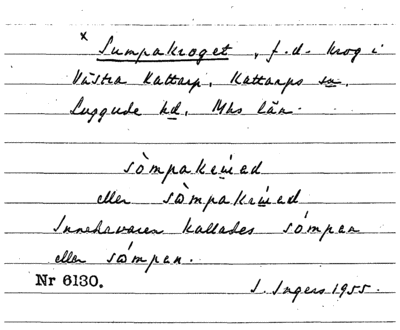 x
Sumpakroget, f.d. krog i
Västra Kattarp, Kattarps sn.
Luggude hd. Mhs län.
sòmpakrẃed
eller sɷ̀mpakrẃed
Innehavaren kallades sómpan
eller sɷ́mpan.
Nr 6130.
I. Ingers 1955.